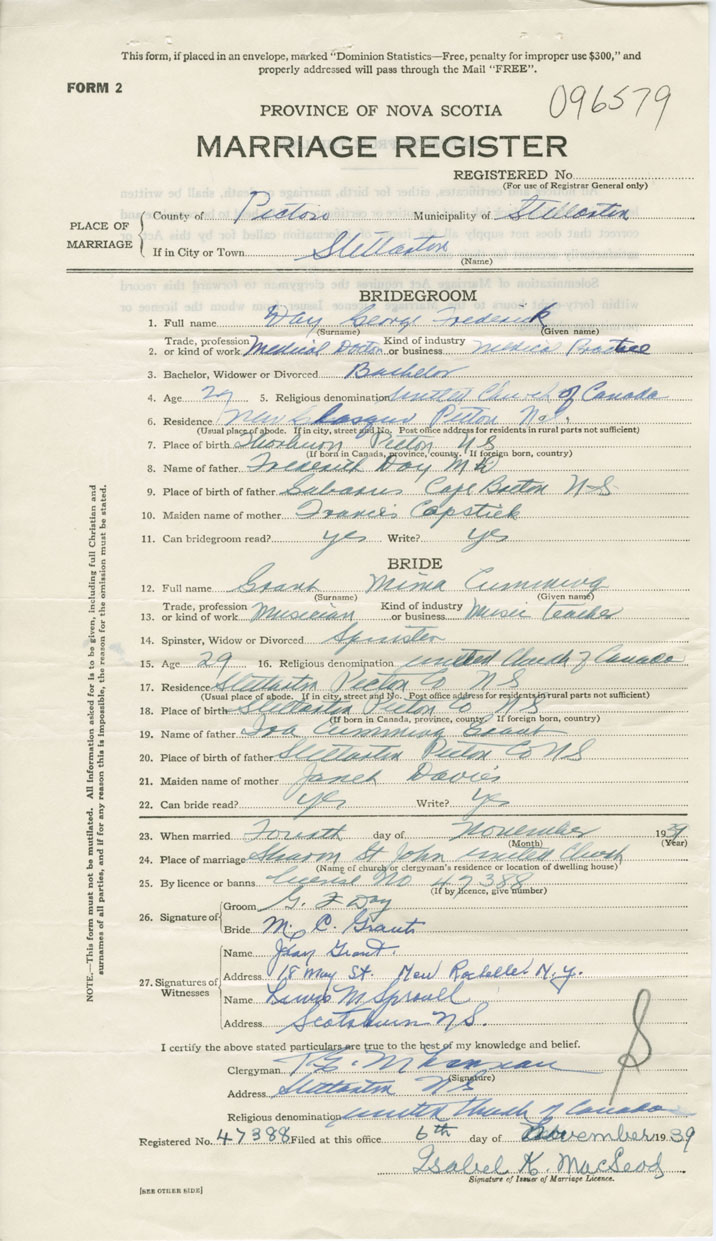 This form, if placed in an envelope, marked "Dominion Statistics—Free, penalty for improper use $300," and
properly addressed will pass through the Mail "FREE".
FORM 2
096579
PROVINCE OF NOVA SCOTIA
MARRIAGE REGISTER
REGISTERED No
(For use of Registrar General only)
PLACE OF MARRIAGE
County of Pictou Municipality of Stellarton
If in City or Town Stellarton
(Name)
BRIDEGROOM
1. Full name Day George Frederick
(Surname) (Given name)
2. Trade, profession or kind of work Medical Doctor Kind of industry or business Medical Practice
3. Bachelor, Widower or Divorced Bachelor
4. Age 29 5. Religious denomination United Church of Canada
6. Residence New Glasgow Pictou N.S.
(Usual place of abode. If in city, street and No. Post office address for residents in rural parts not sufficient)
7. Place of birth Thorburn Pictou N S
(If born in Canada, province, county. If foreign born, country)
8. Name of father Frederick Day M D
9. Place of birth of father Gabarus Cape Breton N-S
10. Maiden name of mother Francis Capstick
11. Can bridegroom read? yes Write? yes
BRIDE
12. Full name Grant Mima Cumming
(Surname) (Given name)
13. Trade, profession or kind of work Musician Kind of industry or business Music Teacher
14. Spinster, Widow or Divorced Spinster
15. Age 29 16. Religious denomination United Church of Canada
17. Residence Stellarton Pictou Co N S
(Usual place of abode. If in city, street and No. Post office address for residents in rural parts not sufficient)
18. Place of birth Stellarton Pictou Co N S
(If born in Canada, province, county. If foreign born, country)
19. Name of father Ira Cumming Grant
20. Place of birth of father Stellarton Pictou Co N S
21. Maiden name of mother Janet Davies
22. Can bride read? yes Write? Yes
23. When married Fourth day of November 1939
(Month) (Year)
24. Place of marriage Sharon St John United Church
(Name of church or clergyman's residence or location of dwelling house)
25. By licence or banns License No 47388
(If by licence, give number)
26. Signature of
Groom G. F Day
Bride M. C. Grant
27. Signatures of Witnesses
Name Jean Grant.
Address 18 May St. New Rochelle N.Y.
Name M Sproull
Address Scotsburn N.S.
I certify the above stated particulars are true to the best of my knowledge and belief.
Clergyman
(Signature)
Address Stellarton N S
Religious denomination United Church of Canada
Registered No. 47388 Filed at this office 6th day of November 1939
Isabel K. MacLeod
Signature of Issuer of Marriage Licence.
[SEE OTHER SIDE]
NOTE.—This form must not be mutilated. All information asked for is to be given, including full Christian and
surnames of all parties, and if for any reason this is impossible, the reason for the omission must be stated.